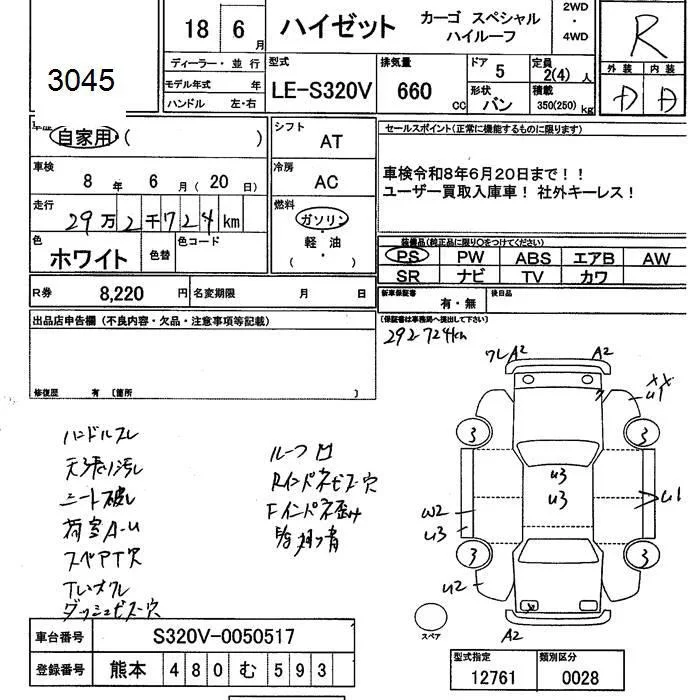 3045
18 6月
ハイゼット
カーゴ スペシャル
ハイルーフ
2WD
・
4WD
R
ディーラー・並行
モデル年式 年
ハンドル 左・右
型式
LE-S320V
排気量
660 CC
ドア 5
形状 バン
定員 2(4)人
積載 350(250)kg
外装 内装
D D
自家用・( )
シフト AT
セールスポイント(正常に機能するものに限ります)
車検
8年 6月(20日)
冷房 AC
車検令和8年6月20日まで!!
ユーザー買取入庫車! 社外キーレス!
走行
29万2千724km
燃料
ガソリン
・
軽油
・
( )
色
ホワイト
色替
色コード
装備品(純正品に限り○をつけてください)
PS PW ABS エアB AW
SR ナビ TV カワ
R券 8,220円
名変期限 月 日
新車保証書
有・無
後日品
(保証書は事務局へ提出して下さい)
出品店申告欄(不良内容・欠品・注意事項等記載)
292724km
修復歴 有〔箇所 〕
ワレA2 A2
XX
u1
3 3
u3
u3
w2
u3
u1
3 3
u2
A2
スペア
ハンドルスレ
天張り汚れ
シート破れ
荷室A-u
スペアT穴
ダッシュビス穴
ルーフ凹
RインパネビスT穴
Fインパネ歪み
車台番号 S320V-0050517
登録番号 熊本 480 む 593
型式指定 類別区分
12761 0028